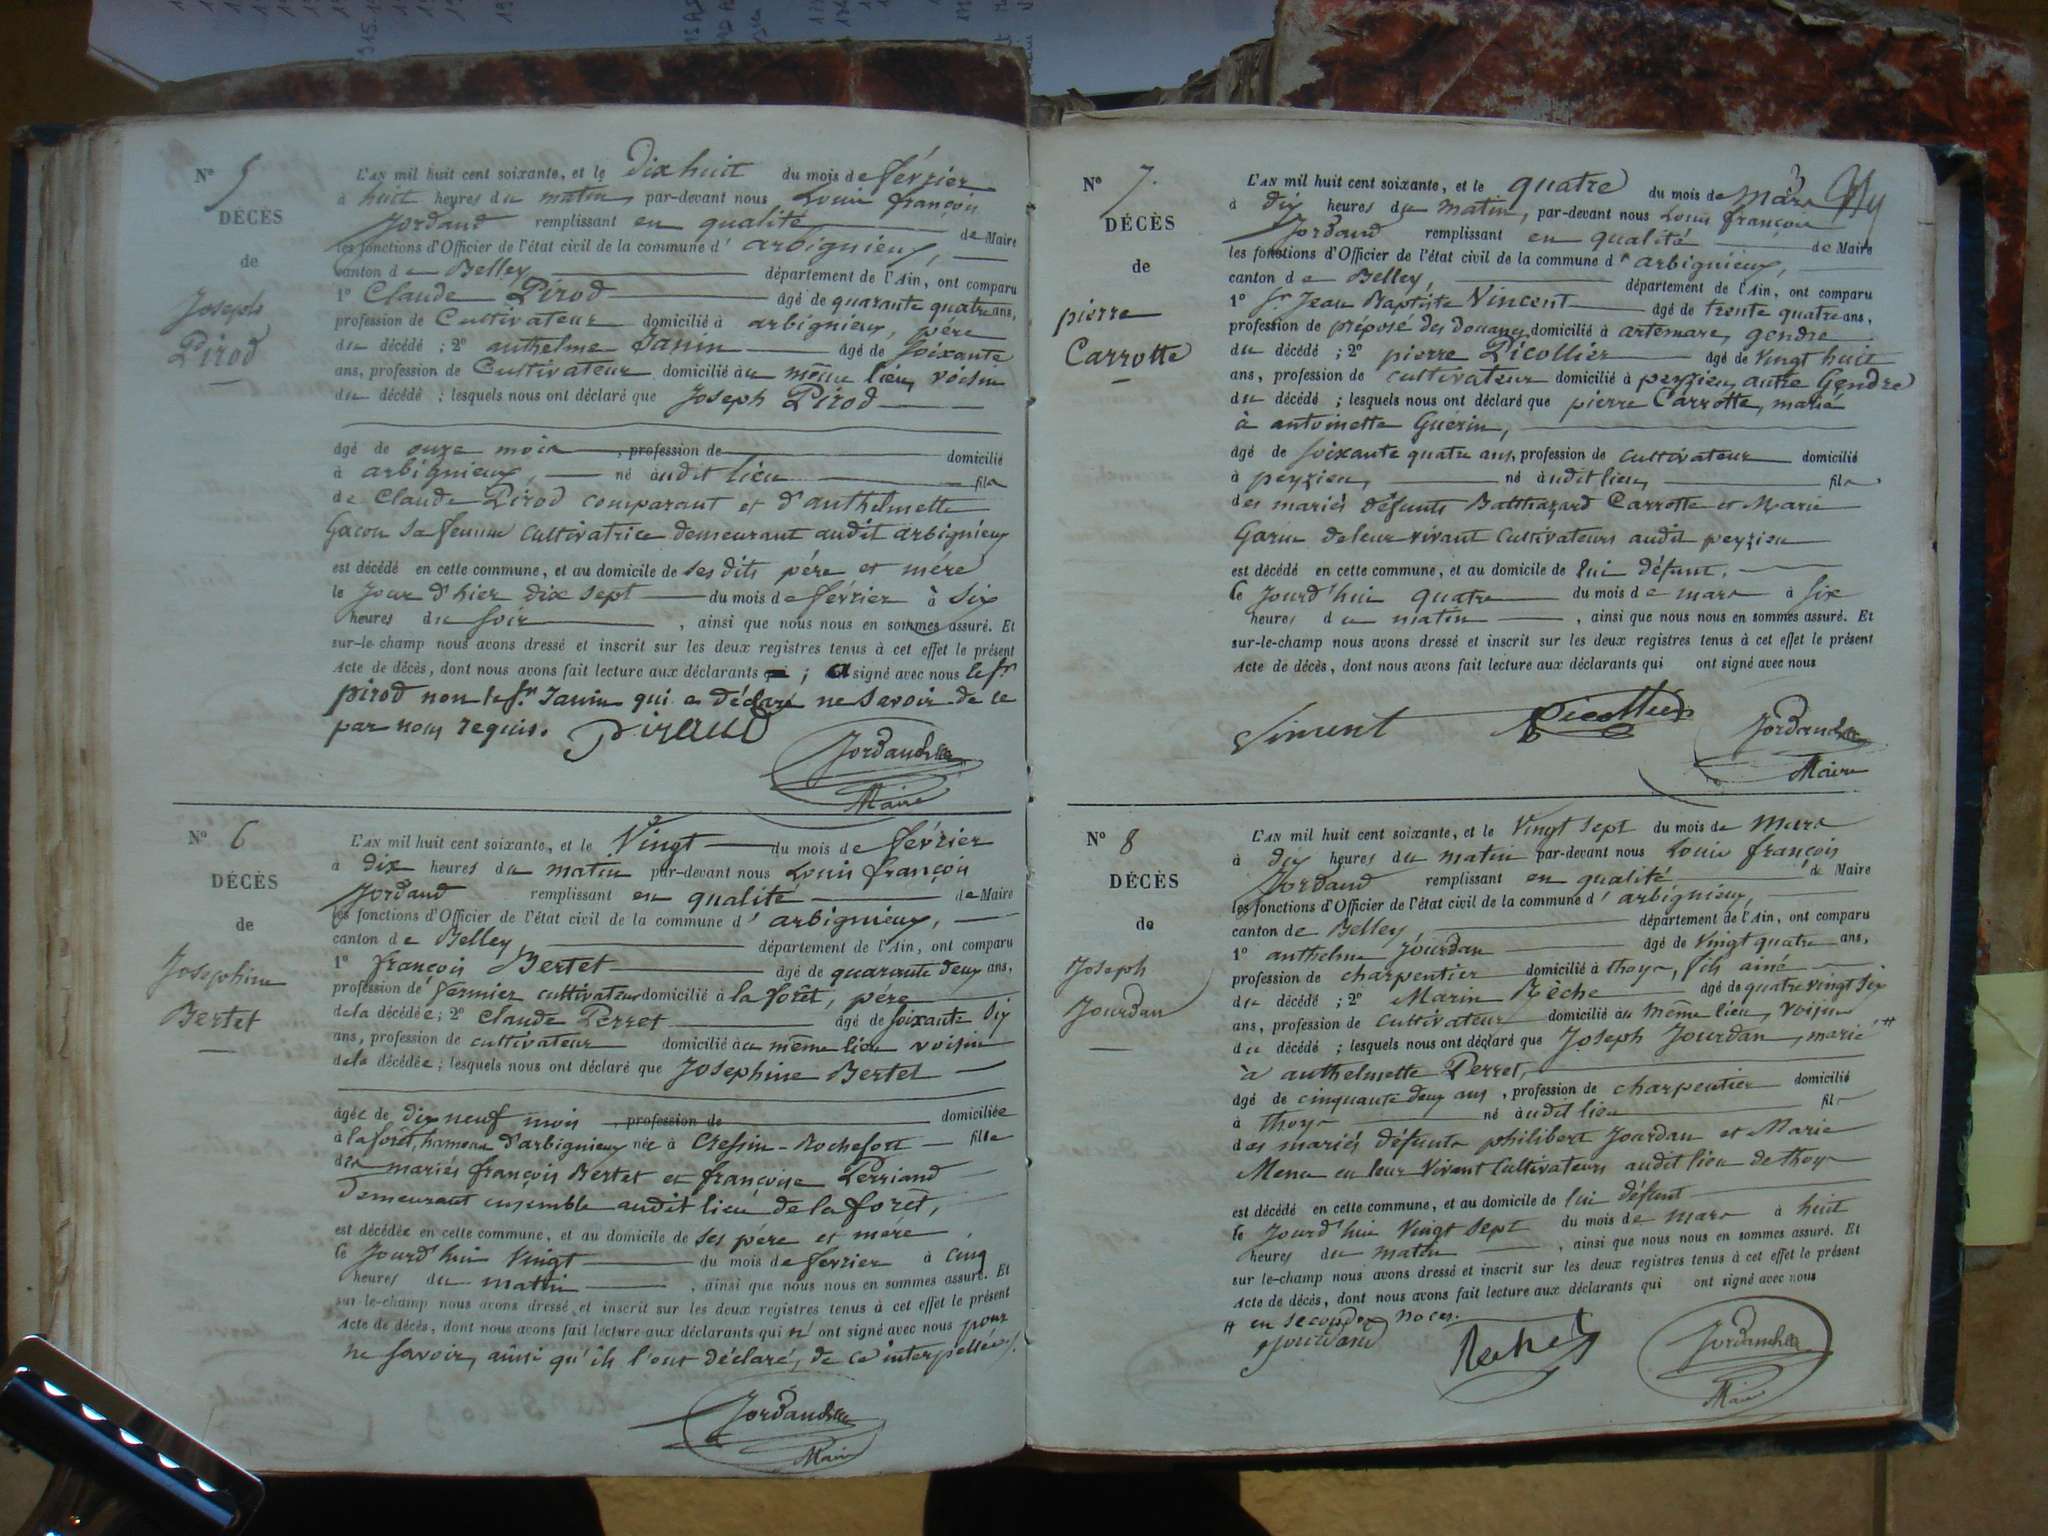 N° 5
DÉCÈS
de
Joseph
Pirod
L'AN mil huit cent soixante, et le Dix huit du mois de février
à huit heures du matin, par-devant nous Louis françois
Jordand remplissant en qualité de Maire
les fonctions d'Officier de l'état civil de la commune d' arbignieux,
canton de Belley, département de l'Ain, ont comparu
1° Claude Pirod âgé de quarante quatre ans,
profession de Cultivateur domicilié à arbignieux, père
du décédé ; 2° anthelme Janin âgé de soixante
ans, profession de Cultivateur domicilié au même lieu, voisin
du décédé ; lesquels nous ont déclaré que Joseph Pirod
âgé de onze mois, profession de domicilié
à arbignieux, né audit lieu fils
de Claude Pirod comparant et d'anthelmette
Gacon sa femme cultivatrice demeurant audit arbignieux
est décédé en cette commune, et au domicile de ses dits père et mère
le Jour d'hier dix sept du mois de février à six
heures du soir, ainsi que nous nous en sommes assuré. Et
sur-le-champ nous avons dressé et inscrit sur les deux registres tenus à cet effet le présent
Acte de décès, dont nous avons fait lecture aux déclarants ; a signé avec nous le sr
pirod non le sr Janin qui a déclaré ne savoir de ce
par nous requis. Piraud
Jordand
Maire
N° 6
DÉCÈS
de
Josephine
Bertet
L'AN mil huit cent soixante, et le Vingt du mois de février
à dix heures du matin par-devant nous Louis françois
Jordand remplissant en qualité de Maire
les fonctions d'Officier de l'état civil de la commune d' arbignieux,
canton de Belley, département de l'Ain, ont comparu
1° françois Bertet âgé de quarante deux ans,
profession de fermier cultivateur domicilié à la forêt, père
de la décédée ; 2° Claude Perret âgé de soixante dix
ans, profession de cultivateur domicilié au même lieu voisin
de la décédée ; lesquels nous ont déclaré que Josephine Bertet
âgée de dix neuf mois, profession de domiciliée
à la forêt, hameau d'arbignieux née à Cressin-Rochefort fille
des mariés françois Bertet et françoise Perriand
demeurant ensemble audit lieu de la forêt,
est décédée en cette commune, et au domicile de ses père et mère
le Jourd'hui vingt du mois de fevrier à cinq
heures du matin, ainsi que nous nous en sommes assuré. Et
sur-le-champ nous avons dressé et inscrit sur les deux registres tenus à cet effet le présent
Acte de décès, dont nous avons fait lecture aux déclarants qui n'ont signé avec nous pour
ne savoir, ainsi qu'ils l'ont déclaré, de ce interpellés.
Jordand
Maire
N° 7.
DÉCÈS
de
pierre
Carrotte
3
L'AN mil huit cent soixante, et le quatre du mois de mars
à dix heures du matin, par-devant nous Louis françois
Jordand remplissant en qualité de Maire
les fonctions d'Officier de l'état civil de la commune d' arbignieux,
canton de Belley, département de l'Ain, ont comparu
1° sr Jean Baptiste Vincent âgé de trente quatre ans,
profession de préposé des douanes domicilié à artemare, gendre
du décédé ; 2° pierre Picollier âgé de vingt huit
ans, profession de cultivateur domicilié à peyzieu, autre Gendre
du décédé ; lesquels nous ont déclaré que pierre Carrotte, marié
à antoinette Guérin,
âgé de soixante quatre ans, profession de cultivateur domicilié
à peyzieu, né audit lieu, fils
des mariés défunts Balthazard Carrotte et Marie
Garin de leur vivant Cultivateurs audit peyzieu
est décédé en cette commune, et au domicile de lui défunt.
le Jourd'hui quatre du mois de mars à six
heures du matin, ainsi que nous nous en sommes assuré. Et
sur-le-champ nous avons dressé et inscrit sur les deux registres tenus à cet effet le présent
Acte de décès, dont nous avons fait lecture aux déclarants qui ont signé avec nous
Vincent Picollier Jordand
Maire
N° 8
DÉCÈS
de
Joseph
Jourdan
L'AN mil huit cent soixante, et le Vingt sept du mois de mars
à dix heures du matin par-devant nous Louis françois
Jordand remplissant en qualité de Maire
les fonctions d'Officier de l'état civil de la commune d' arbignieux,
canton de Belley département de l'Ain, ont comparu
1° anthelme Jourdan âgé de vingt quatre ans,
profession de charpentier domicilié à thoys, fils ainé
du décédé ; 2° Marin Rèche âgé de quatre vingt six
ans, profession de cultivateur domicilié au même lieu, voisin
du décédé ; lesquels nous ont déclaré que Joseph Jourdan, marié #
à anthelmette Perret,
âgé de cinquante deux ans, profession de charpentier domicilié
à thoys né audit lieu fils
des mariés défunts philibert Jourdan et Marie
Menu en leur vivant Cultivateurs audit lieu de thoys
est décédé en cette commune, et au domicile de lui défunt
le Jourd'hui vingt sept du mois de mars à huit
heures du matin, ainsi que nous nous en sommes assuré. Et
sur le-champ nous avons dressé et inscrit sur les deux registres tenus à cet effet le présent
Acte de décès, dont nous avons fait lecture aux déclarants qui ont signé avec nous
# en secondes noces.
Jordand
Maire